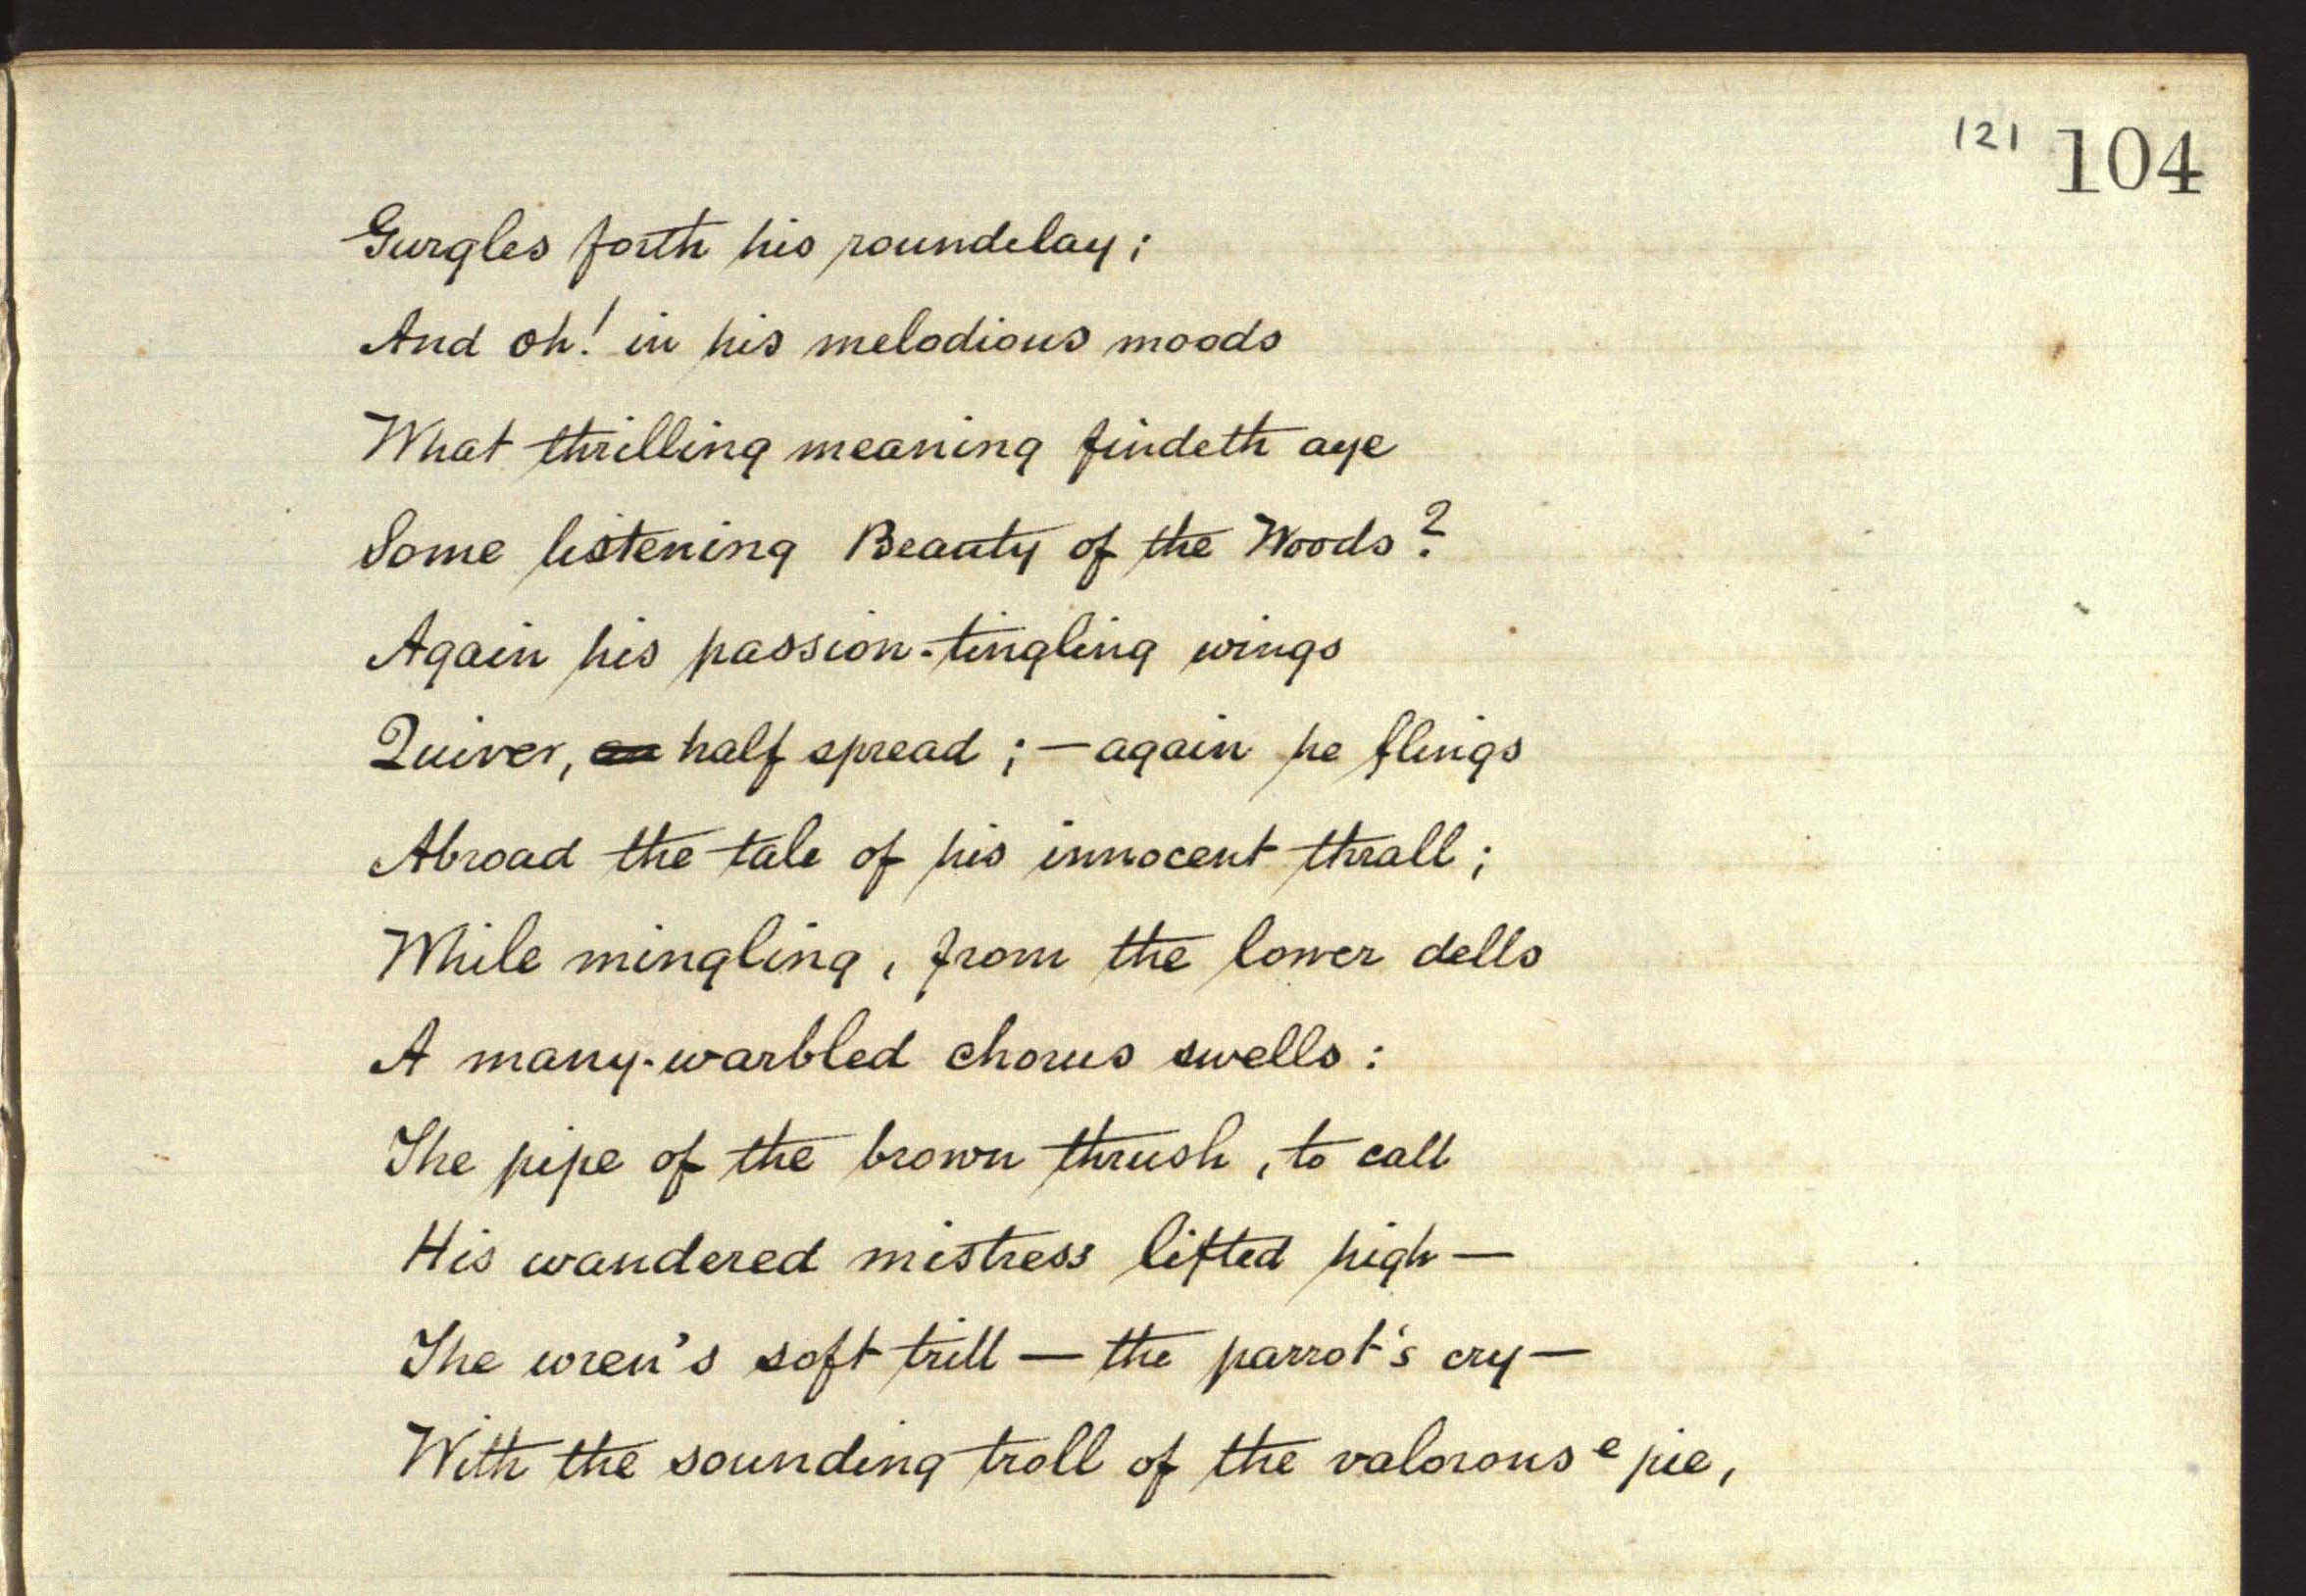 121 104
Gurgles forth his roundelay;
And oh! in his melodious moods
What thrilling meaning findeth aye
Some listening Beauty of the Woods?
Again his passion-tingling wings
Quiver, half spread; — again he flings
Abroad the tale of his innocent thrall;
While mingling, from the lower dells
A many-warbled chorus swells:
The pipe of the brown thrush, to call
His wandered mistress lifted high —
The wren's soft trill — the parrot's cry —
With the sounding troll of the valorous e pie,